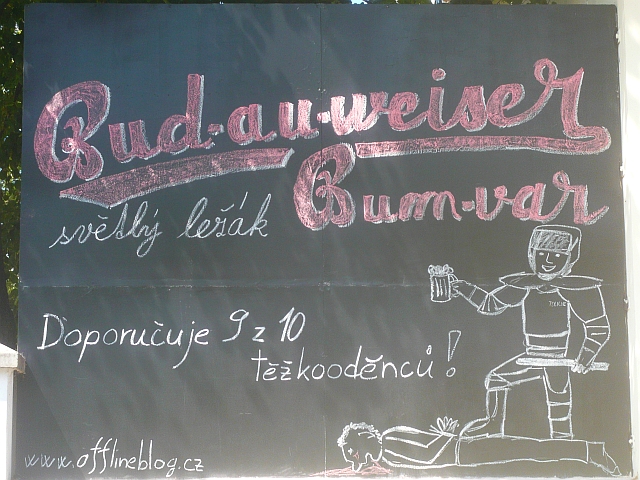 Bud-au-weiser
Bum-var
světlý ležák
Doporučuje 9 z 10
těžkooděnců!
www.offlineblog.cz